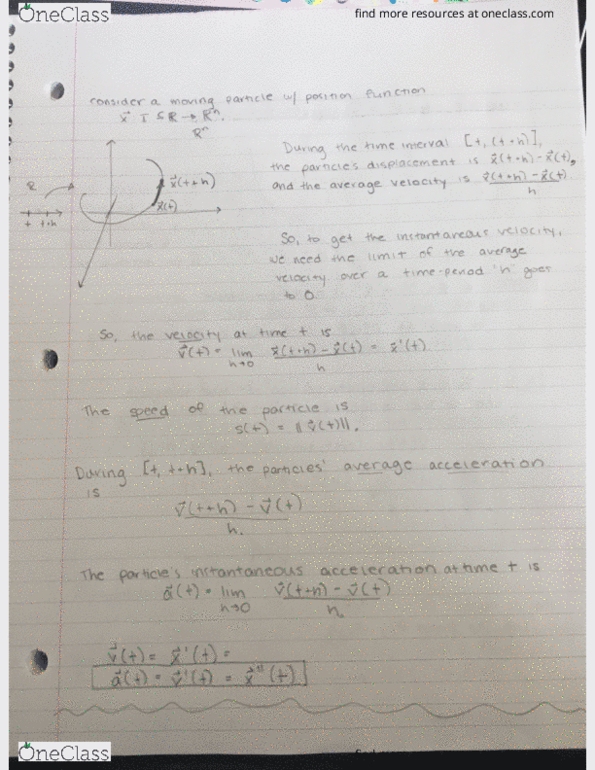 OneClass
find more resources at oneclass.com
consider a moving particle w/ position function
x⃗ I ⊆ R → Rⁿ.
Rⁿ
During the time interval [t, (t+h)],
the particle's displacement is x⃗(t+h) - x⃗(t),
and the average velocity is x⃗(t+h) - x⃗(t)
h
R
x⃗(t+h)
x⃗(t)
t t+h
So, to get the instantaneous velocity,
we need the limit of the average
velocity over a time-period "h" goes
to 0
So, the velocity at time t is
v⃗(t) = lim x⃗(t+h) - x⃗(t) = x⃗'(t)
h→0 h
The speed of the particle is
s(t) = ||v⃗(t)||.
During [t, t+h], the particles' average acceleration
is
v⃗(t+h) - v⃗(t)
h.
The particle's instantaneous acceleration at time t is
a⃗(t) = lim v⃗(t+h) - v⃗(t)
h→0 h
v⃗(t) = x⃗'(t) =
a⃗(t) = v⃗'(t) = x⃗''(t)
OneClass